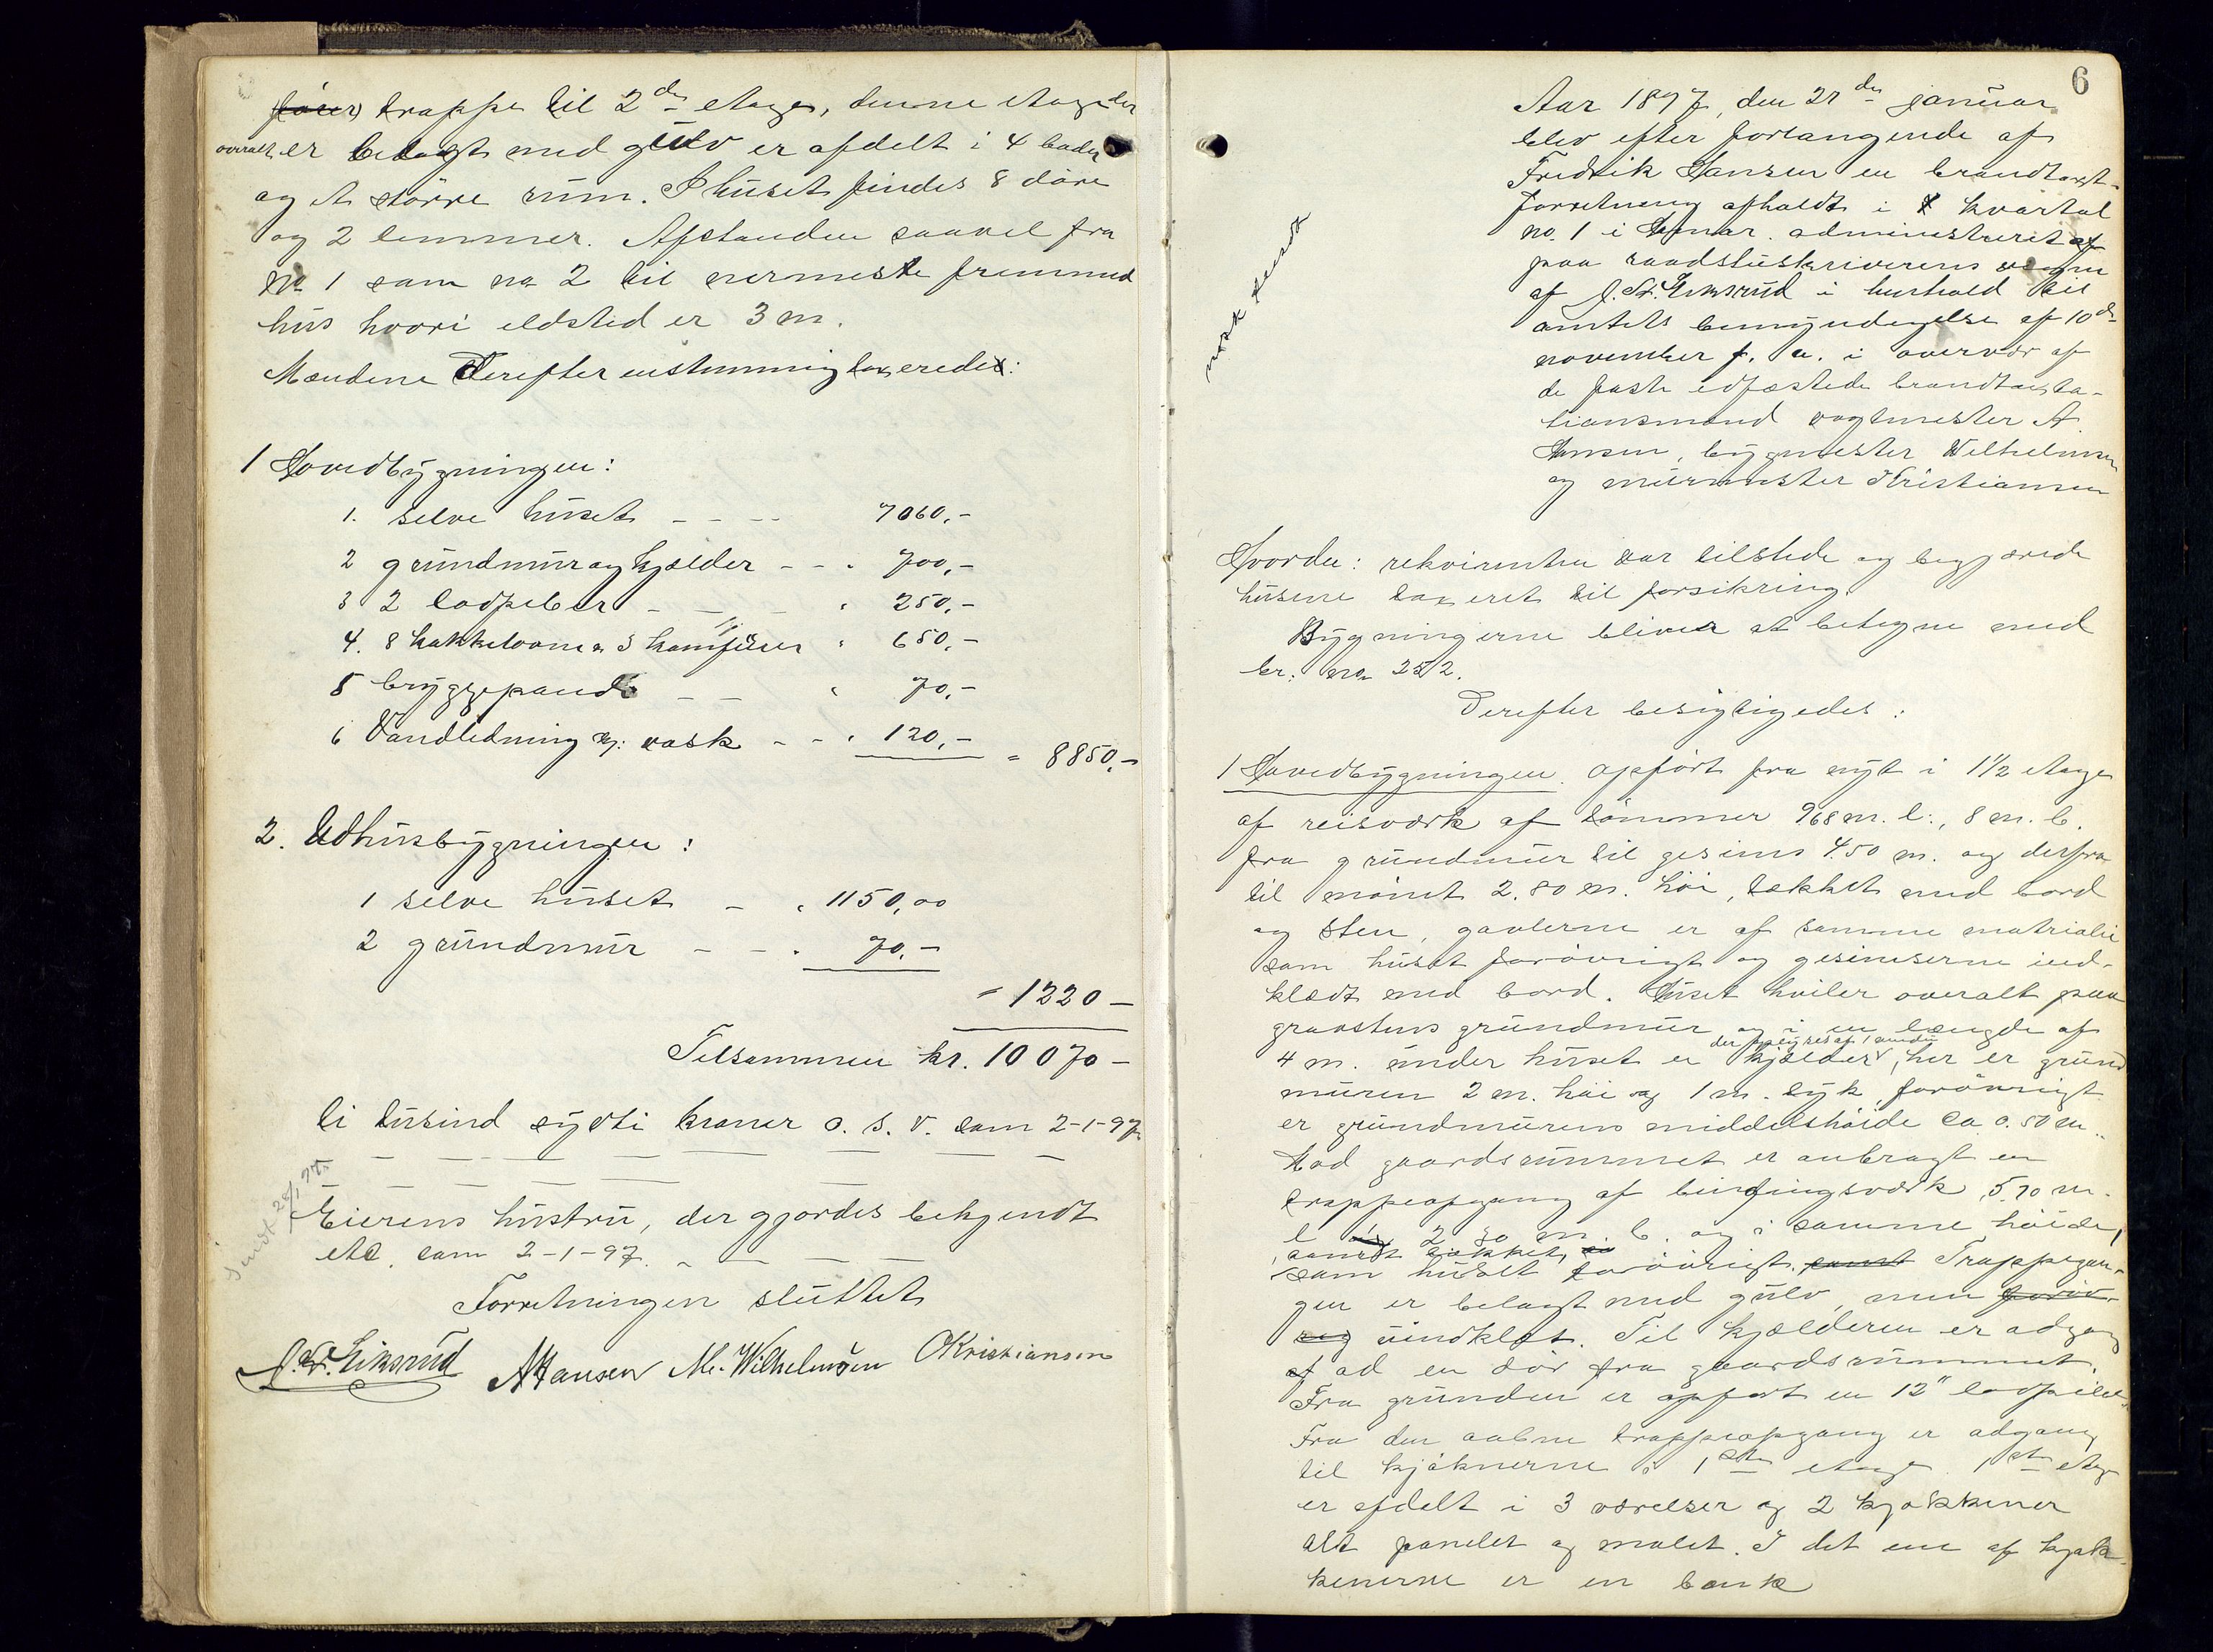 fører trappe til 2den etage, denne etage der
overalt er belagt med gulv er afdelt i 4 boder
og et större rum. I huset findes 8 döre
og 2 lemmer. Afstanden saavel fra
no 1 som no 2 til nermeste fremmed
hus hvori eldsted er 3 m.
Mændene derefter enstemmig taxerede:
1 Hovedbygningen:
1. selve huset - - - 7060,-
2 grundmur og kjælder - - " 700,-
3 2 lodpiber - - - " 250,-
4. 8 kakkelovne & 3 komfurer " 650,-
5 bryggepande - - " 70,-
6 Vandledning og vask - - " 120,- = 8850,-
2. Udhusbygningen:
1 selve huset - " 1150,00
2 grundmur - - " 70,-
= 1220 -
Tilsammen kr. 10070 -
ti tusind sytti kroner o. s. v. som 2-1-97
Sendt 28/1 97
Eierens hustru, der gjordes bekjendt
etc. som 2-1-97.
Forretningen sluttet
J. St. Eiksrud AHansen M. Wilhelmsen OKristiansen
6
Aar 1897, den 21de januar
blev efter forlangende af
Fredrik Hansen en brandtaxt-
forretning afholdt i kvartal
no. 1 i Hamar administreret af
paa raadstuskriverens vegne
af J. St. Eiksrud i henhold til
amtets bemyndigelse af 10de
november f. a. i overvær af
de faste edfæstede brandtaxta-
tionsmænd vagtmester A.
Hansen, bygmester Wilhelmsen
og murmester Kristiansen
Hvorda: rekvirenten var tilstede og begjærede
husene taxeret til forsikring.
Bygningerne bliver at betegne med
br. no 252.
Derefter besigtigedes:
1 Hovedbygningen. opfört fra nyt i 1 1/2 etage
af reisværk af tömmer 968 m. l., 8 m. b.
fra grundmur til gesims 4.50 m. og derfra
til mönet 2.80 m. höi, tækket med bord
og sten, gavlerne er af samme matrialie
som huset forövrigt og gesimserne ind-
klædt med bord. Huset hviler overalt paa
graastens grundmur og i en længde af
der oplyses af 1 vindu
4 m. under huset er kjælder, her er grund
muren 2 m. höi og 1 m. tyk, forövrigt
er grundmurens middelshöide ca 0.50 m.
Mod gaardsrummet er anbragt en
trappeopgang af bindingsværk, 5.70 m.
l og 2.30 m. b. og i samme höide,
samt tækket
som huset forövrigt. samt Trappegan-
gen er belagt med gulv, men forövr-
rig uindklæt. Til kjælderen er adgang
af ad en dör fra gaardsrummet.
Fra grunden er opfört en 12" lodpibe.
Fra den aabne trappeopgang er adgang
til kjöknerne i 1ste etage. 1ste etage
er afdelt i 3 værelser og 2 kjökkener
alt panelet og malet. I det ene af kjök-
kenerne er en bænk